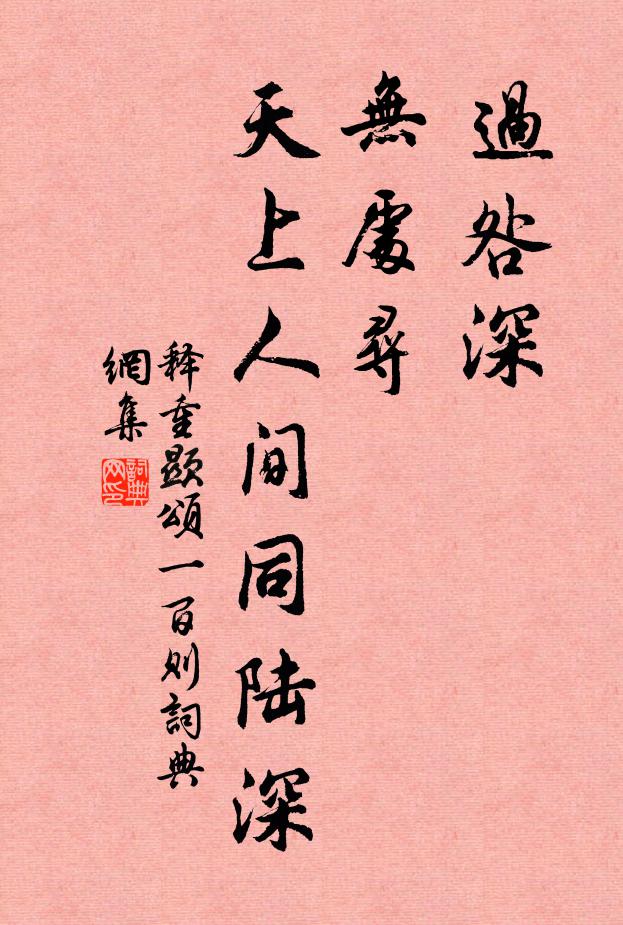 過咎深
無處尋
天上人间同陆深
释重顯頌一百则詞典
網集
詞典
网印